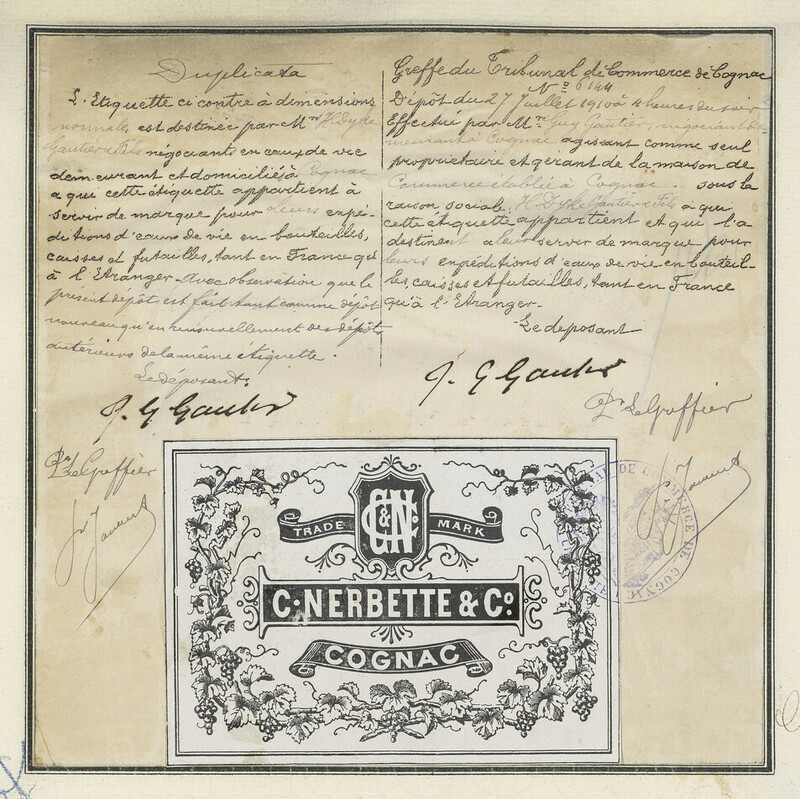 Duplicata
L'Etiquette ci contre à dimensions
normales est destinée par Mrs H. Dyke
Gautier & Fils négociants en eaux de vie
demeurant et domiciliés à Cognac
a qui cette étiquette appartient à
servir de marque pour leurs expé-
ditions d'eaux de vie en bouteilles,
caisses et futailles, tant en France qu'
à l'Etranger avec observation que le
présent dépôt est fait tant comme dépôt
nouveau qu'en renouvellement des dépôts
antérieurs de la même étiquette.
Le déposant:
J. G Gautier
Pr Le Greffier
Greffe du Tribunal de Commerce de Cognac
No 6144
Dépôt du 27 Juillet 1910 à 4 heures du soir
Effectué par Mr Guy Gautier, négociant de
meurant à Cognac agissant comme seul
propriétaire et gérant de la maison de
Commerce établie à Cognac. sous la
raison sociale. H. Dyke Gautier & Fils à qui
cette étiquette appartient et qui l'a
destinent a leur servir de marque pour
leurs expéditions d'eaux de vie en bouteil-
les caisses et futailles, tant en France
qu'à l'Etranger.
Le deposant
J. G Gautier
Pr Le Greffier
TRIBUNAL DE COMMERCE DE COGNAC
C&NCo
TRADE MARK
C. NERBETTE & Co.
COGNAC